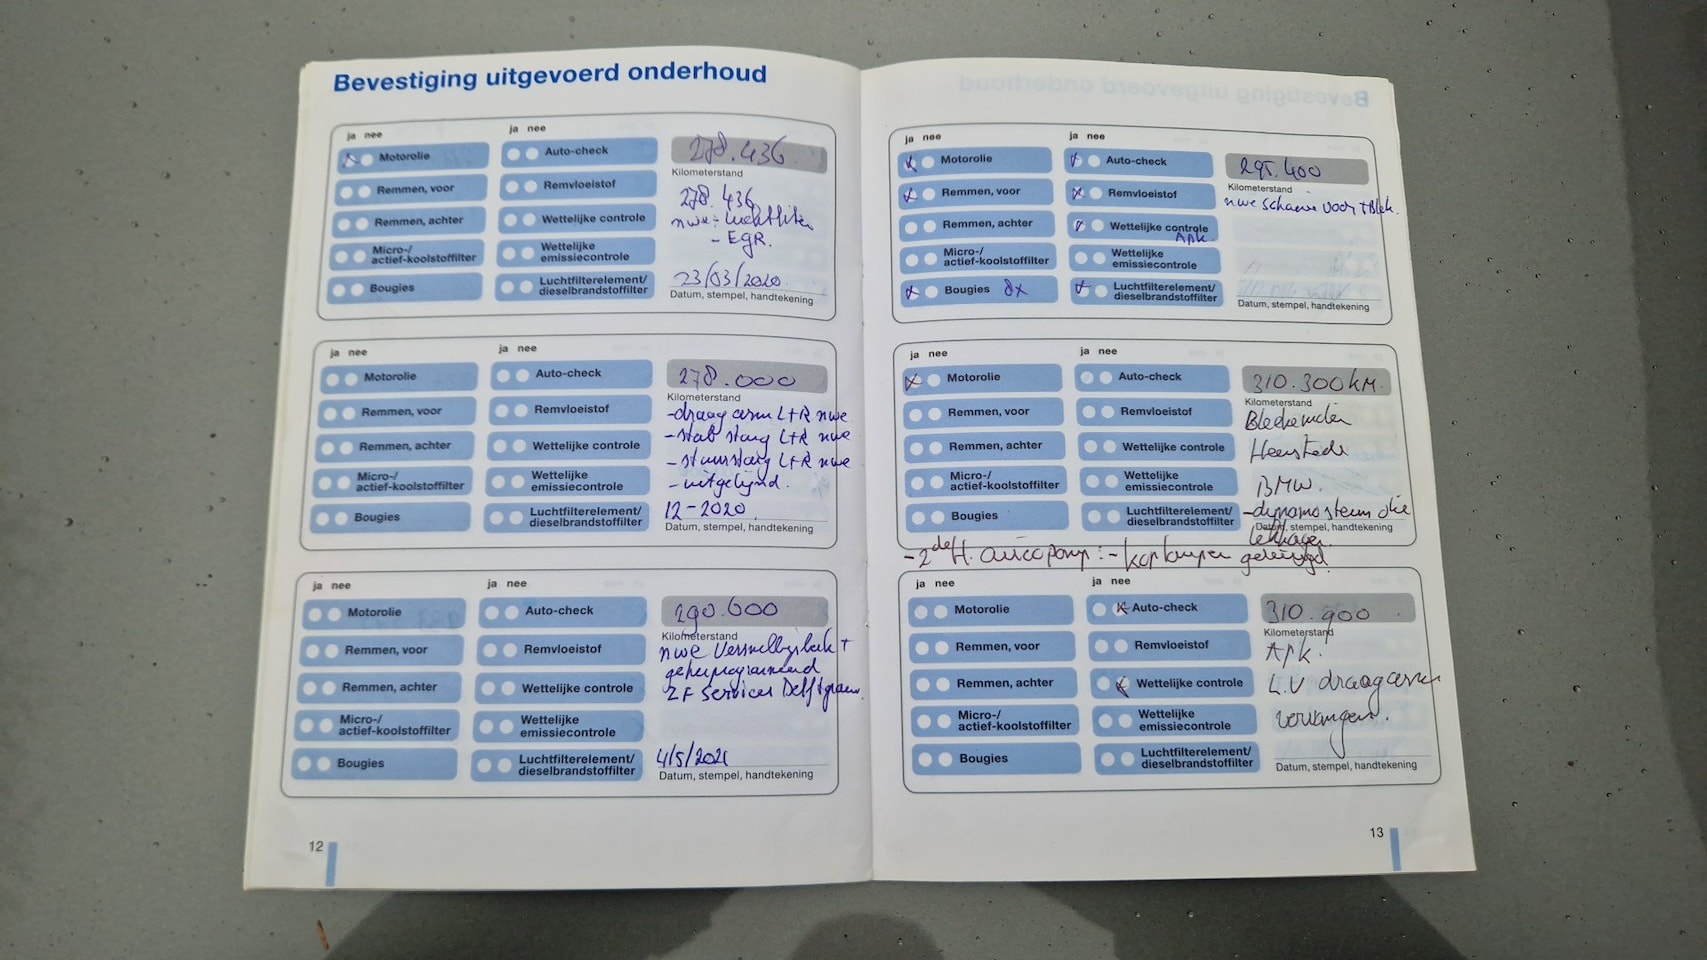 Bevestiging uitgevoerd onderhoud
ja nee
ja nee
Motorolie
Auto-check
278.436
Kilometerstand
Remmen, voor
Remvloeistof
278.436
Remmen, achter
Wettelijke controle
nwe: Luchtfilter
- EgR.
Micro-/
actief-koolstoffilter
Wettelijke
emissiecontrole
Bougies
Luchtfilterelement/
dieselbrandstoffilter
23/03/2020
Datum, stempel, handtekening
ja nee
ja nee
Motorolie
Auto-check
278.000
Kilometerstand
Remmen, voor
Remvloeistof
- draag arm L+R nwe
- stab stang L+R nwe
Remmen, achter
Wettelijke controle
- stuurstang L+R nwe
Micro-/
actief-koolstoffilter
Wettelijke
emissiecontrole
- uitgelijnd.
Bougies
Luchtfilterelement/
dieselbrandstoffilter
12-2020
Datum, stempel, handtekening
ja nee
ja nee
Motorolie
Auto-check
290.600
Kilometerstand
Remmen, voor
Remvloeistof
nwe Versnellingsbak +
geherprogrammeerd
Remmen, achter
Wettelijke controle
ZF Services Delfgauw
Micro-/
actief-koolstoffilter
Wettelijke
emissiecontrole
Bougies
Luchtfilterelement/
dieselbrandstoffilter
4/5/2021
Datum, stempel, handtekening
12
ja nee
ja nee
Motorolie
Auto-check
295.400
Kilometerstand
Remmen, voor
Remvloeistof
nwe schave voor + Blok.
Remmen, achter
Wettelijke controle
Apk.
Micro-/
actief-koolstoffilter
Wettelijke
emissiecontrole
Bougies 8x
Luchtfilterelement/
dieselbrandstoffilter
Datum, stempel, handtekening
ja nee
ja nee
Motorolie
Auto-check
310.300KM.
Kilometerstand
Remmen, voor
Remvloeistof
Remmen, achter
Wettelijke controle
Heemstede
Micro-/
actief-koolstoffilter
Wettelijke
emissiecontrole
BMW.
Bougies
Luchtfilterelement/
dieselbrandstoffilter
- dynamosteun olie
Datum, stempel, handtekening
lekkage.
- 2de H. aircopomp: - koplampen gereinigd.
ja nee
ja nee
Motorolie
Auto-check
310.900
Kilometerstand
Remmen, voor
Remvloeistof
Apk.
Remmen, achter
Wettelijke controle
L.V draagarm
Micro-/
actief-koolstoffilter
Wettelijke
emissiecontrole
vervangen.
Bougies
Luchtfilterelement/
dieselbrandstoffilter
Datum, stempel, handtekening
13